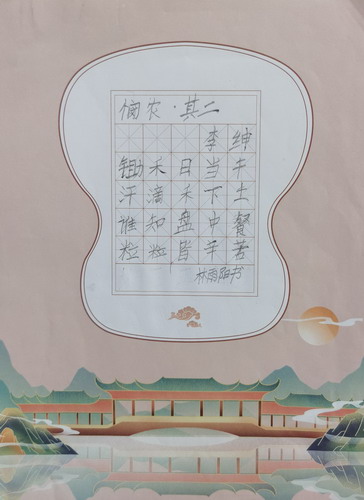 悯农·其二
李绅
锄禾日当午
汗滴禾下土
谁知盘中餐
粒粒皆辛苦
林雨阳书